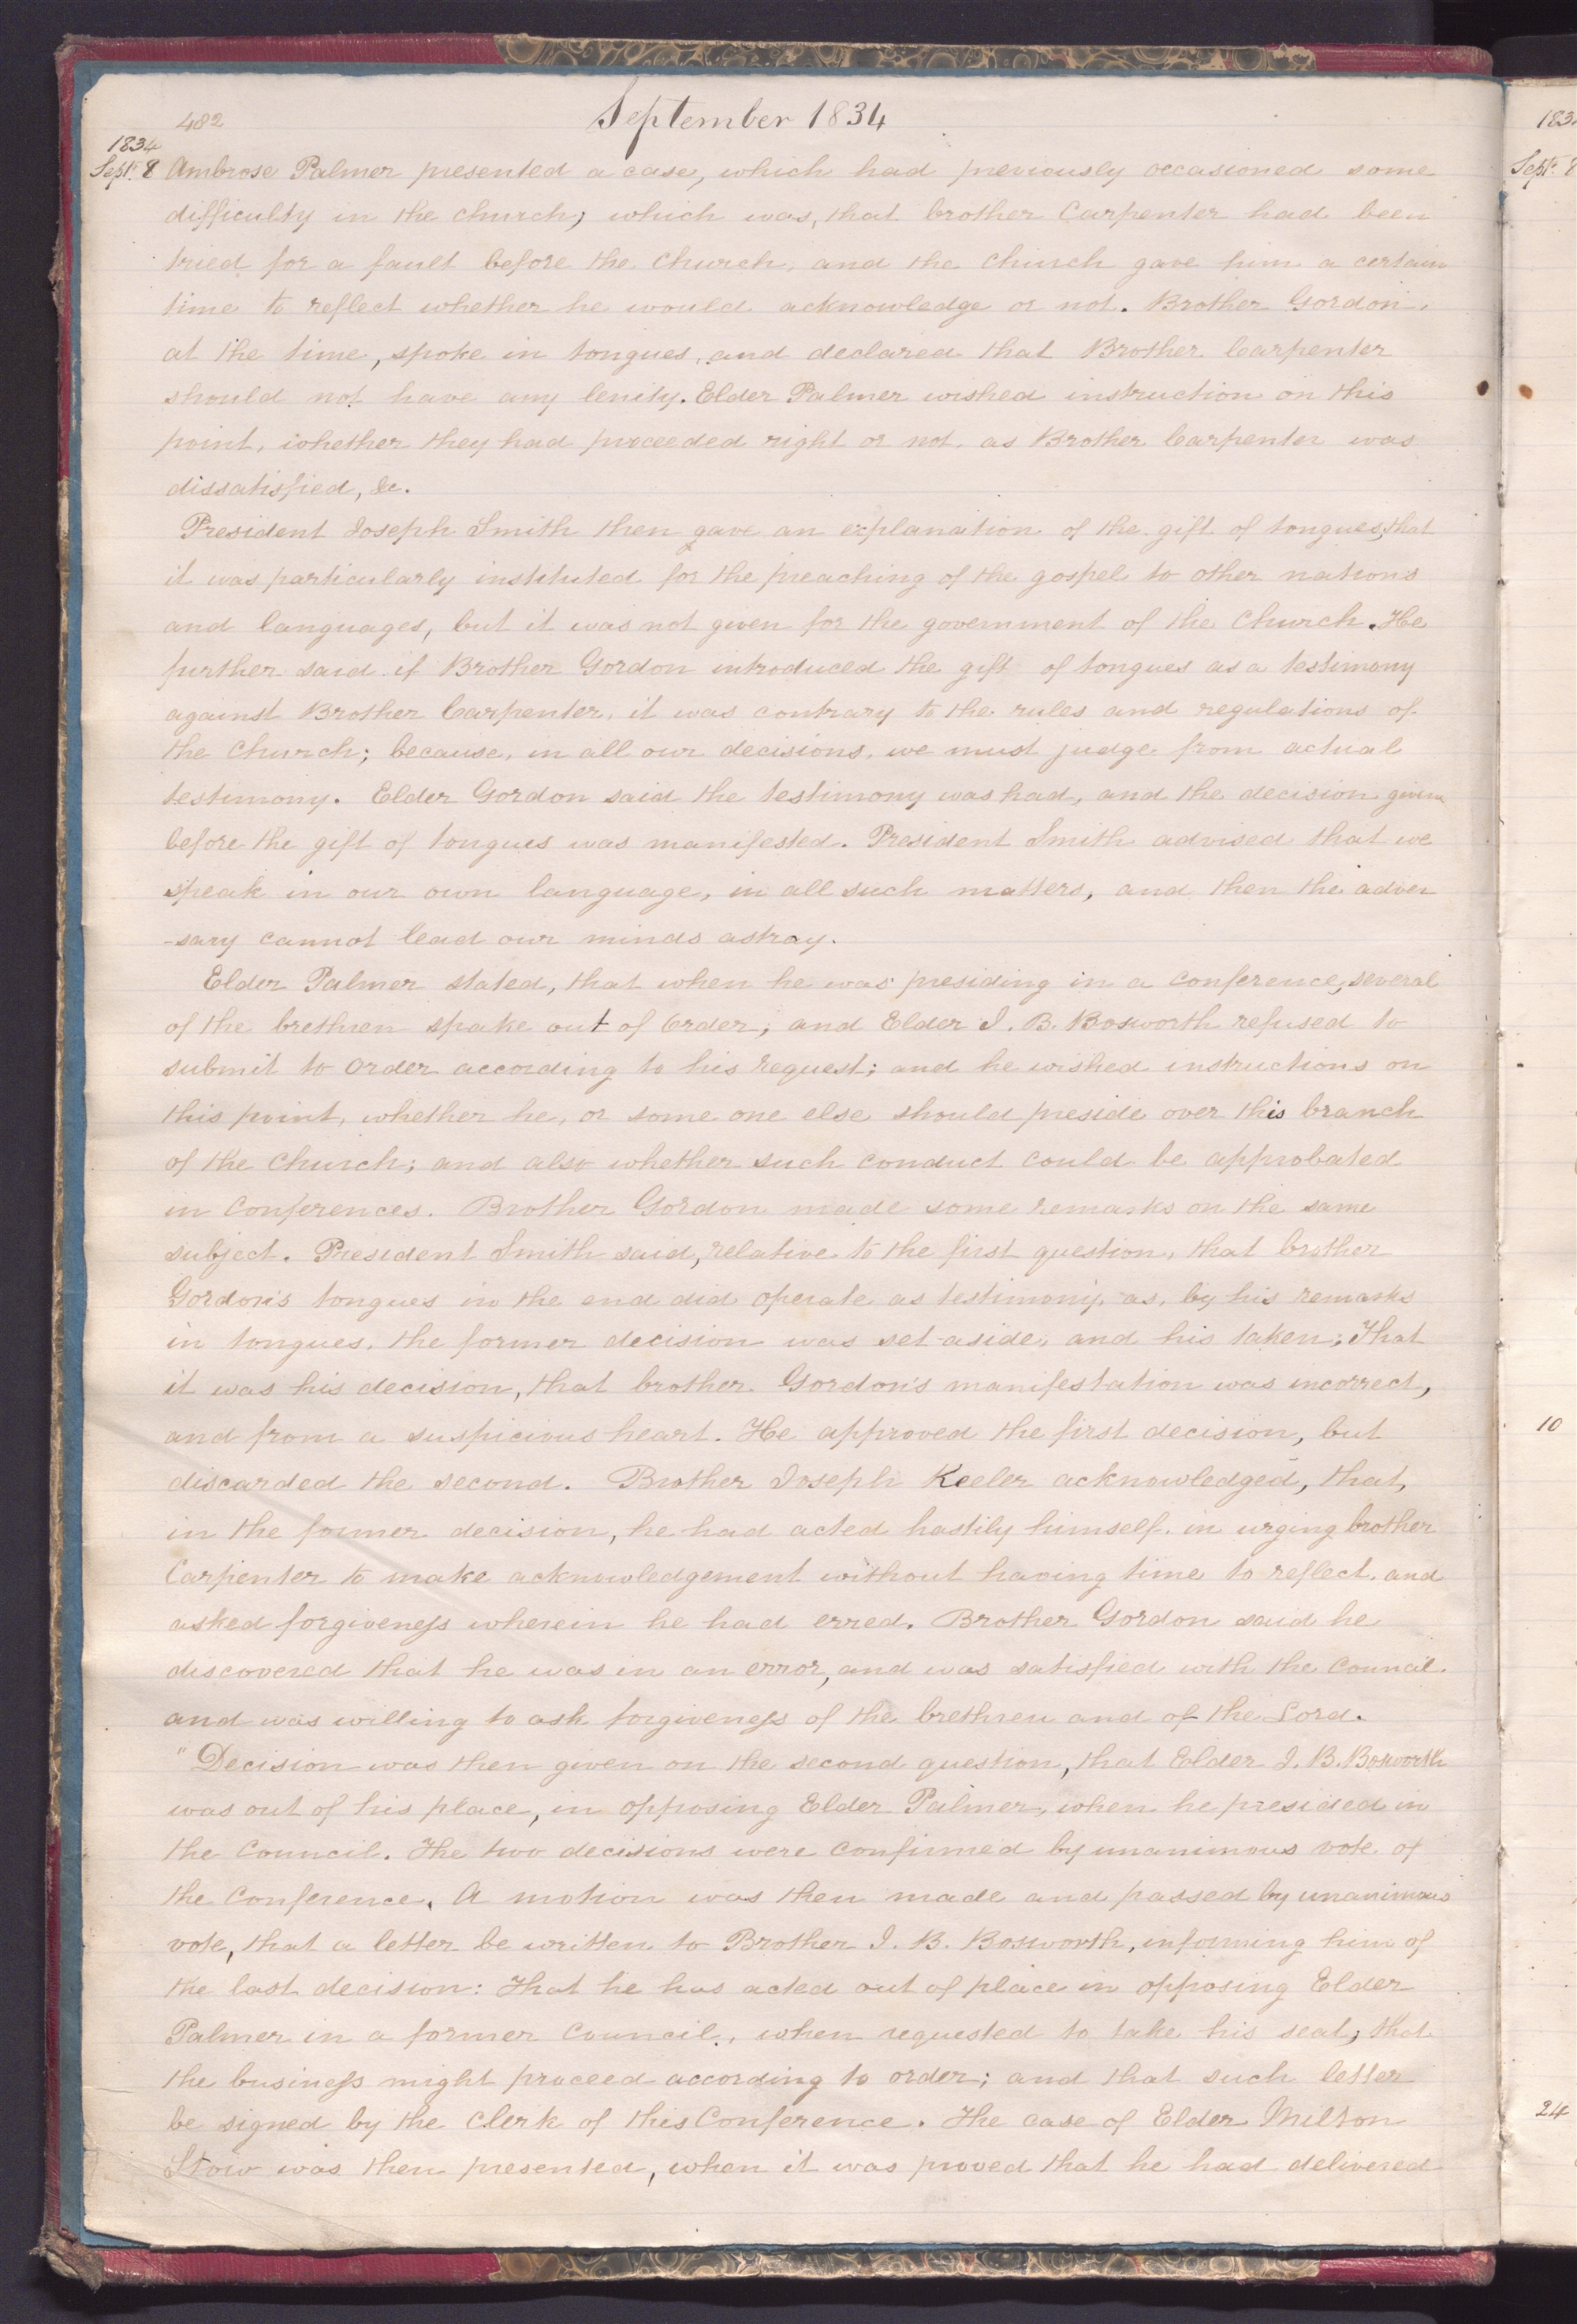 482
September 1834
1834
Sept. 8 Ambrose Palmer presented a case, which had previously occasioned some
difficulty in the church; which was, that brother Carpenter had been
tried for a fault before the Church, and the Church gave him a certain
time to reflect whether he would acknowledge or not. Brother Gordon,
at the time, spoke in tongues, and declared that Brother Carpenter
should not have any lenity. Elder Palmer wished instruction on this
point, whether they had proceeded right or not, as Brother Carpenter was
dissatisfied, &c.
President Joseph Smith then gave an explanation of the gift of tongues, that
it was particularly instituted for the preaching of the gospel to other nations
and languages, but it was not given for the government of the Church. He
further said if Brother Gordon introduced the gift of tongues as a testimony
against Brother Carpenter, it was contrary to the rules and regulations of
the Church; because, in all our decisions, we must judge from actual
testimony. Elder Gordon said the testimony was had, and the decision given
before the gift of tongues was manifested. President Smith advised that we
speak in our own language, in all such matters, and then the adver
-sary cannot lead our minds astray.
Elder Palmer stated, that when he was presiding in a conference, several
of the brethren spake out of Order; and Elder J. B. Bosworth refused to
submit to Order according to his request; and he wished instructions on
this point, whether he, or some one else should preside over this branch
of the Church; and also whether such conduct could be approbated
in Conferences. Brother Gordon made some remarks on the same
subject. President Smith said, relative to the first question, that brother
Gordon's tongues in the end did operate as testimony, as, by his remarks
in tongues, the former decision was set aside, and his taken; That
it was his decision, that brother Gordon's manifestation was incorrect,
and from a suspicious heart. He approved the first decision, but
discarded the second. Brother Joseph Keeler acknowledged, that,
in the former decision, he had acted hastily himself, in urging brother
Carpenter to make acknowledgement without having time to reflect, and
asked forgiveness wherein he had erred. Brother Gordon said he
discovered that he was in an error, and was satisfied with the Council.
and was willing to ask forgiveness of the brethren and of the Lord.
"Decision was then given on the second question, that Elder J. B. Bosworth
was out of his place, in opposing Elder Palmer, when he presided in
the Council. The two decisions were confirmed by unanimous vote of
the Conference. A motion was then made and passed by unanimous
vote, that a letter be written to Brother J. B. Bosworth, informing him of
the last decision: That he has acted out of place in opposing Elder
Palmer in a former Council, when requested to take his seat; that
the business might proceed according to order; and that such letter
be signed by the Clerk of this Conference. The case of Elder Milton
Stow was then presented, when it was proved that he had delivered
183
Sept. 8
10
24